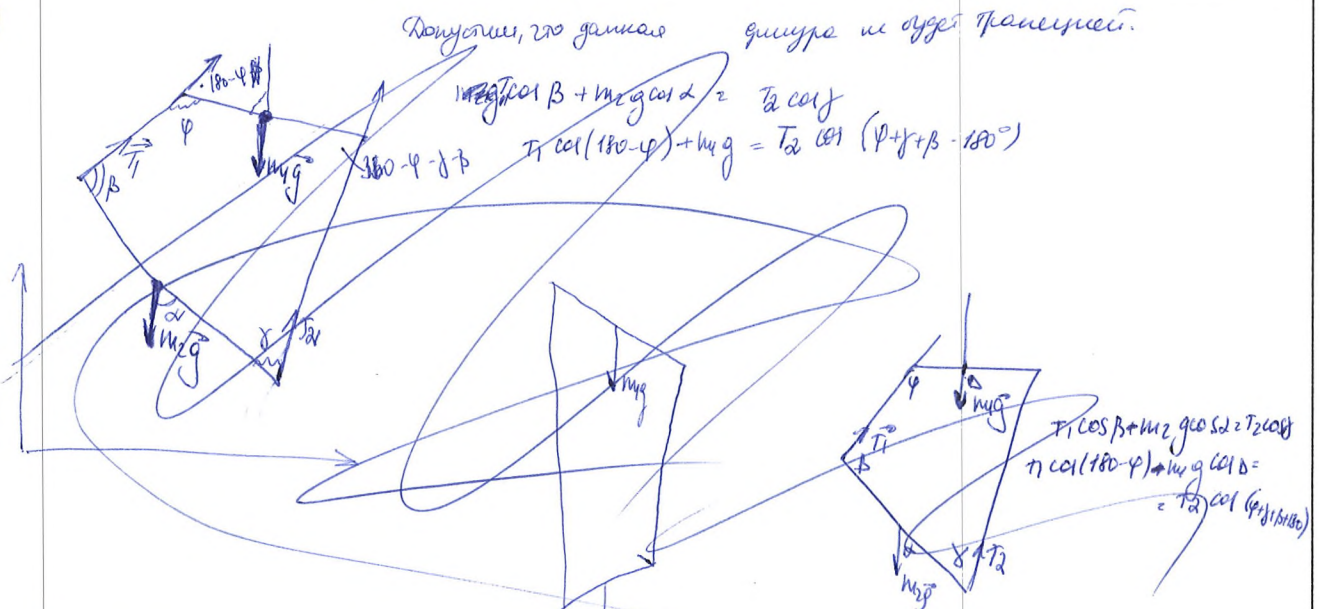 Допустим, что данная фигура не будет трапецией.
T₁cos β + m₂g cos α = T₂ cos γ
T₁ cos(180-φ) + m₁g = T₂ cos (φ+γ+β-180°)
180-φ
φ
T₁
β
m₁g
180-φ-γ-β
α
m₂g
γ
T₂
m₁g
φ
m₁g
T₁
β
α
m₂g
γ
T₂
T₁cosβ+m₂gcosα=T₂cosγ
T₁cos(180-φ)+m₁g cosΔ=
= T₂ cos (φ+γ+β+180)